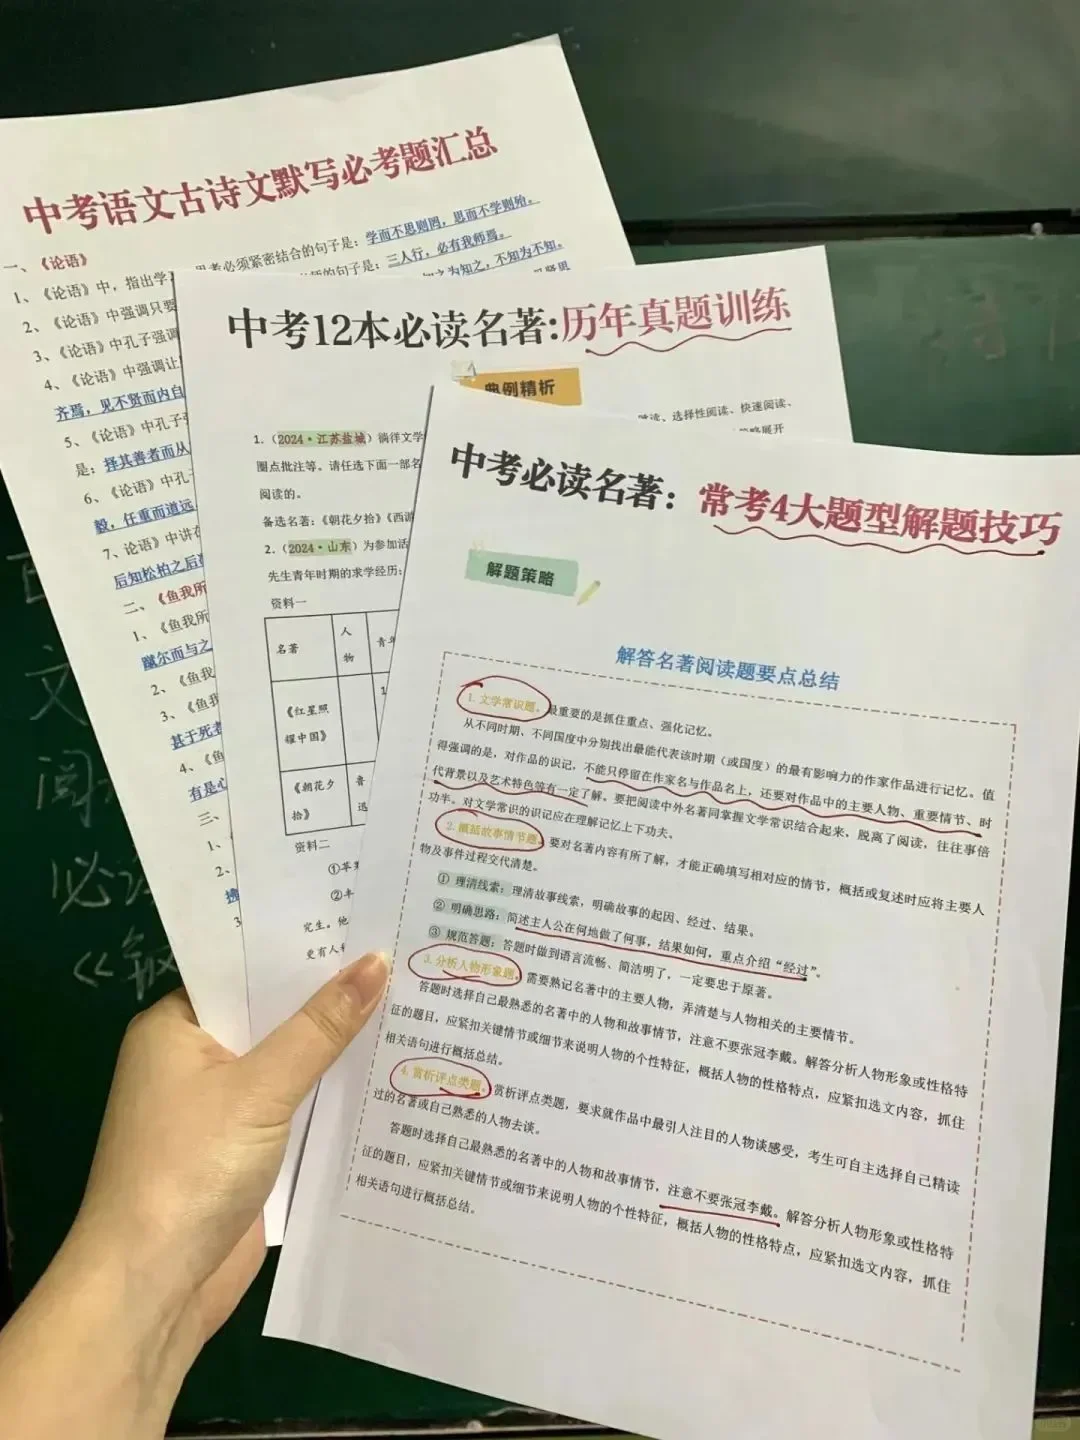 中考语文古诗文默写必考题汇总
一、《论语》
1、《论语》中，指出学 思考必须紧密结合的句子是：学而不思则罔，思而不学则殆。
2、《论语》中强调只要 的句子是：三人行，必有我师焉。
3、《论语》中孔子强调 知之为知之，不知为不知。
4、《论语》中强调让 见贤思
齐焉，见不贤而内自
5、《论语》中孔子
是：择其善者而从
6、《论语》中孔
毅，任重而道远
7、论语》中讲在
后知松柏之后
二、《鱼我所
1、《鱼我所
蹴尔而与之
2、《鱼我
3、《鱼我
甚于死者
4、《鱼
有是心
三、
1、
2、
3
中考12本必读名著:历年真题训练
典例精析
读、选择性阅读、快速阅读、
1.（2024·江苏盐城）徜徉文学 策略展开
圈点批注等。请任选下面一部名
阅读的。
备选名著：《朝花夕拾》《西游
2.（2024·山东）为参加活
先生青年时期的求学经历：
资料一
名著 人物 青年
《红星照耀中国》 1
《朝花夕拾》 鲁迅
资料二
①苹
②丰
究生。他
更有人
中考必读名著：常考4大题型解题技巧
解题策略
解答名著阅读题要点总结
1.文学常识题。最重要的是抓住重点、强化记忆。
从不同时期、不同国度中分别找出最能代表该时期（或国度）的最有影响力的作家作品进行记忆。值
得强调的是，对作品的识记，不能只停留在作家名与作品名上，还要对作品中的主要人物、重要情节、时
代背景以及艺术特色等有一定了解。要把阅读中外名著同掌握文学常识结合起来，脱离了阅读，往往事倍
功半。对文学常识的识记应在理解记忆上下功夫。
2.概括故事情节题。要对名著内容有所了解，才能正确填写相对应的情节，概括或复述时应将主要人
物及事件过程交代清楚。
① 理清线索：理清故事线索，明确故事的起因、经过、结果。
② 明确思路：简述主人公在何地做了何事，结果如何，重点介绍“经过”。
③ 规范答题：答题时做到语言流畅、简洁明了，一定要忠于原著。
3.分析人物形象题。需要熟记名著中的主要人物，弄清楚与人物相关的主要情节。
答题时选择自己最熟悉的名著中的人物和故事情节，注意不要张冠李戴。解答分析人物形象或性格特
征的题目，应紧扣关键情节或细节来说明人物的个性特征，概括人物的性格特点，应紧扣选文内容，抓住
相关语句进行概括总结。
4.赏析评点类题。赏析评点类题，要求就作品中最引人注目的人物谈感受，考生可自主选择自己精读
过的名著或自己熟悉的人物去谈。
答题时选择自己最熟悉的名著中的人物和故事情节，注意不要张冠李戴。解答分析人物形象或性格特
征的题目，应紧扣关键情节或细节来说明人物的个性特征，概括人物的性格特点，应紧扣选文内容，抓住
相关语句进行概括总结。
文
阅
必
《